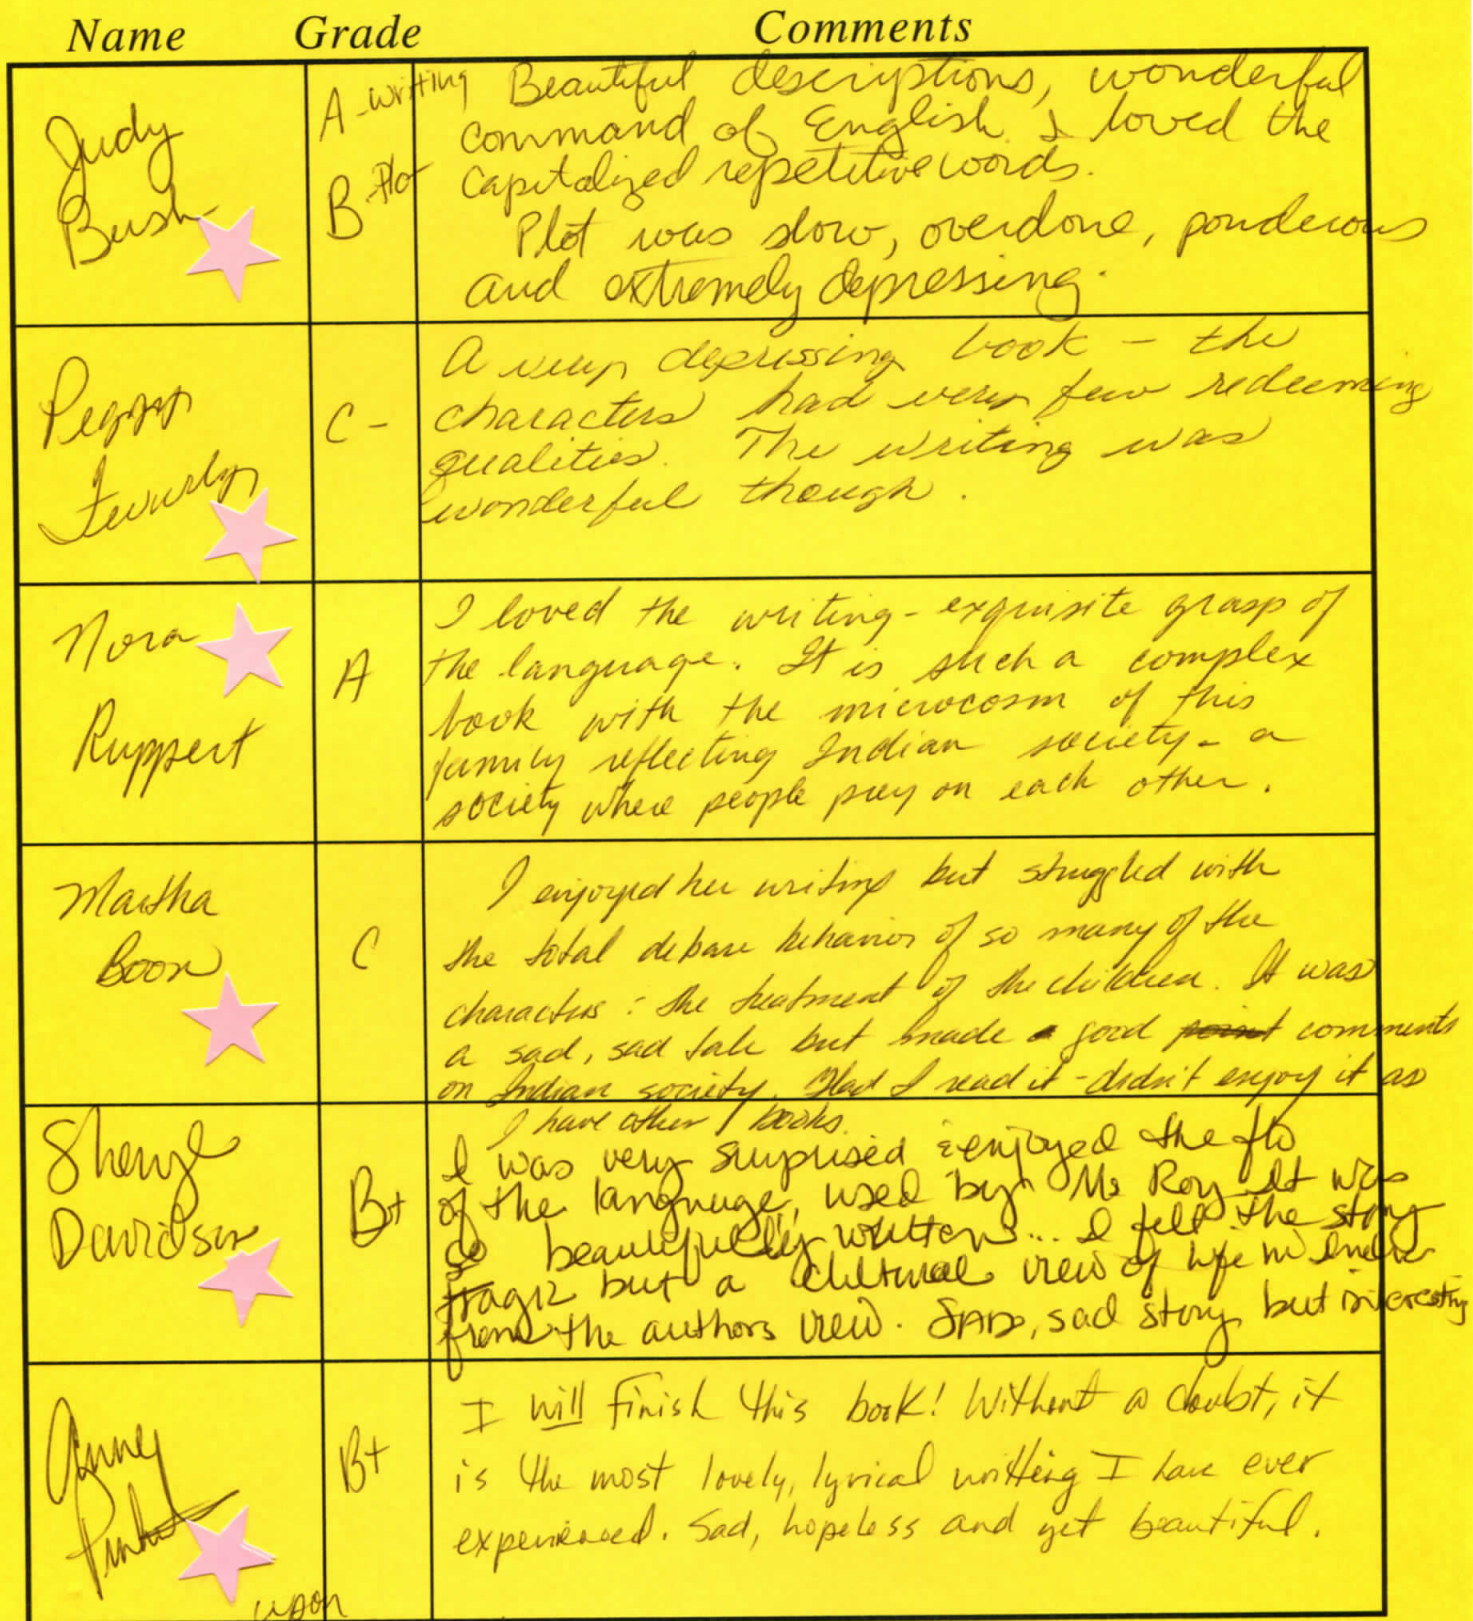 Name Grade Comments
Judy
Bush
A-writing
B-Plot
Beautiful descriptions, wonderful
command of English. I loved the
capitalized repetitive words.
Plot was slow, overdone, ponderous
and extremely depressing.
Peggy
C-
A very depressing book - the
characters had very few redeeming
qualities. The writing was
wonderful though.
Nora
Ruppert
A
I loved the writing - exquisite grasp of
the language. It is such a complex
book with the microcosm of this
family reflecting Indian society - a
society where people prey on each other.
Martha
Boon
C
I enjoyed her writing but struggled with
the total debase behavior of so many of the
characters: the treatment of the children. It was
a sad, sad tale but made a good point comments
on Indian society. Glad I read it - didn't enjoy it as
I have other books.
Sheryl
Davidson
B+
I was very surprised & enjoyed the flo
of the language, used by Ms Roy. It was
so beautifully written... I felt the story
tragic but a cultural view of life in India
from the authors view. SAD, sad story but interesting
Anney
B+
I will finish this book! Without a doubt, it
is the most lovely, lyrical writting I have ever
experienced. Sad, hopeless and yet beautiful.
upon